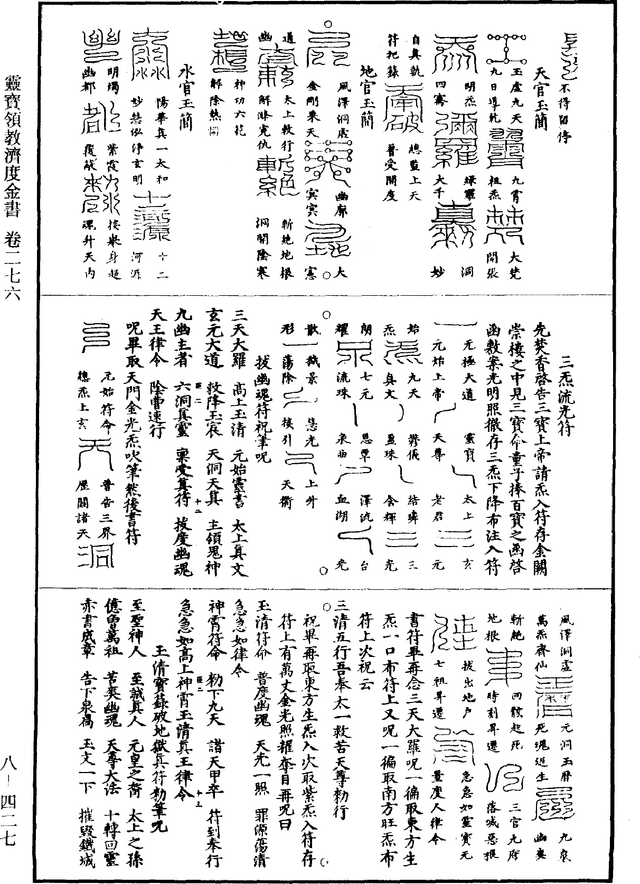 靈寶領教濟度金書 卷二七六
八-四二七
不得留停
天官玉簡
玉虛九天
九日導乾
九霄
祖炁
大梵
開張
明炁
四騫
綠羅
大千
洞
妙
自真執
符把籙
總監上天
普受開度
地官玉簡
風澤洞虛
金剛乘天
幽廓
冥冥
大
憲
道
幽
太上敕行
解滌冤仇
斬絕地根
洞開陰寒
神功六花
解除熱惱
水官玉簡
陽華真一太和
妙慈弘淨玄明
十二
河源
明燭
幽都
紫霞
魂升天內
三炁流光符
先焚香啓告三寶上帝請炁入符存金闕
崇樓之中見三寶命童子捧百寶之函啓
函敷案光明照徹存三炁下降布注入符
元極大道
元始上帝
靈寶
天尊
太上
老君
玄
元
始
炁
九天
真文
鬱儀
盈珠
結璘
含輝
三
光
朗
耀
七元
流珠
恩覃
泉曲
澤流
血湖
台
光
散
形
穢景
蕩除
慧光
接引
上升
天衢
拔幽魂符祝筆呪
三天大羅 高上玉清 元始靈書 太上真文
玄元大道 救降玉哀 天洞天真 主領鬼神
九幽主者 六洞真靈 稟受真符 拔度幽魂
天王律令 陰曹速行
呪畢取天門金光炁吹筆然後書符
元始符命
總炁上玄
普告三界
歷關諸天
風澤洞虛
萬炁齊仙
元洞玉曆
死魂返生
九哀
幽爽
斬絕
地根
四骸起死
時刻昇遷
三官九府
落滅惡根
拔出地戶
七祖昇遷
急急如靈寶元
量度人律令
書符畢再念三天大羅呪一徧取東方生
炁一口布符上又呪一徧取南方旺炁布
符上次祝云
三清五行吾奉太一救苦天尊勅行
祝畢再取東方生炁入次取紫炁入符存
符上有萬丈金光照耀奪目再呪曰
玉清符命 普度幽魂 天光一照 罪源蕩清
急急如律令
神霄符命 勅下九天 諸天甲卒 符到奉行
急急如高上神霄玉清真王律令
玉清寶籙破地獄真符勅筆呪
至聖神人 至誠真人 元皇之裔 太上之孫
億曾萬祖 苦爽幽魂 天尊大法 十轉回靈
赤書威章 告下泉扃 玉文一下 摧毀鐵城